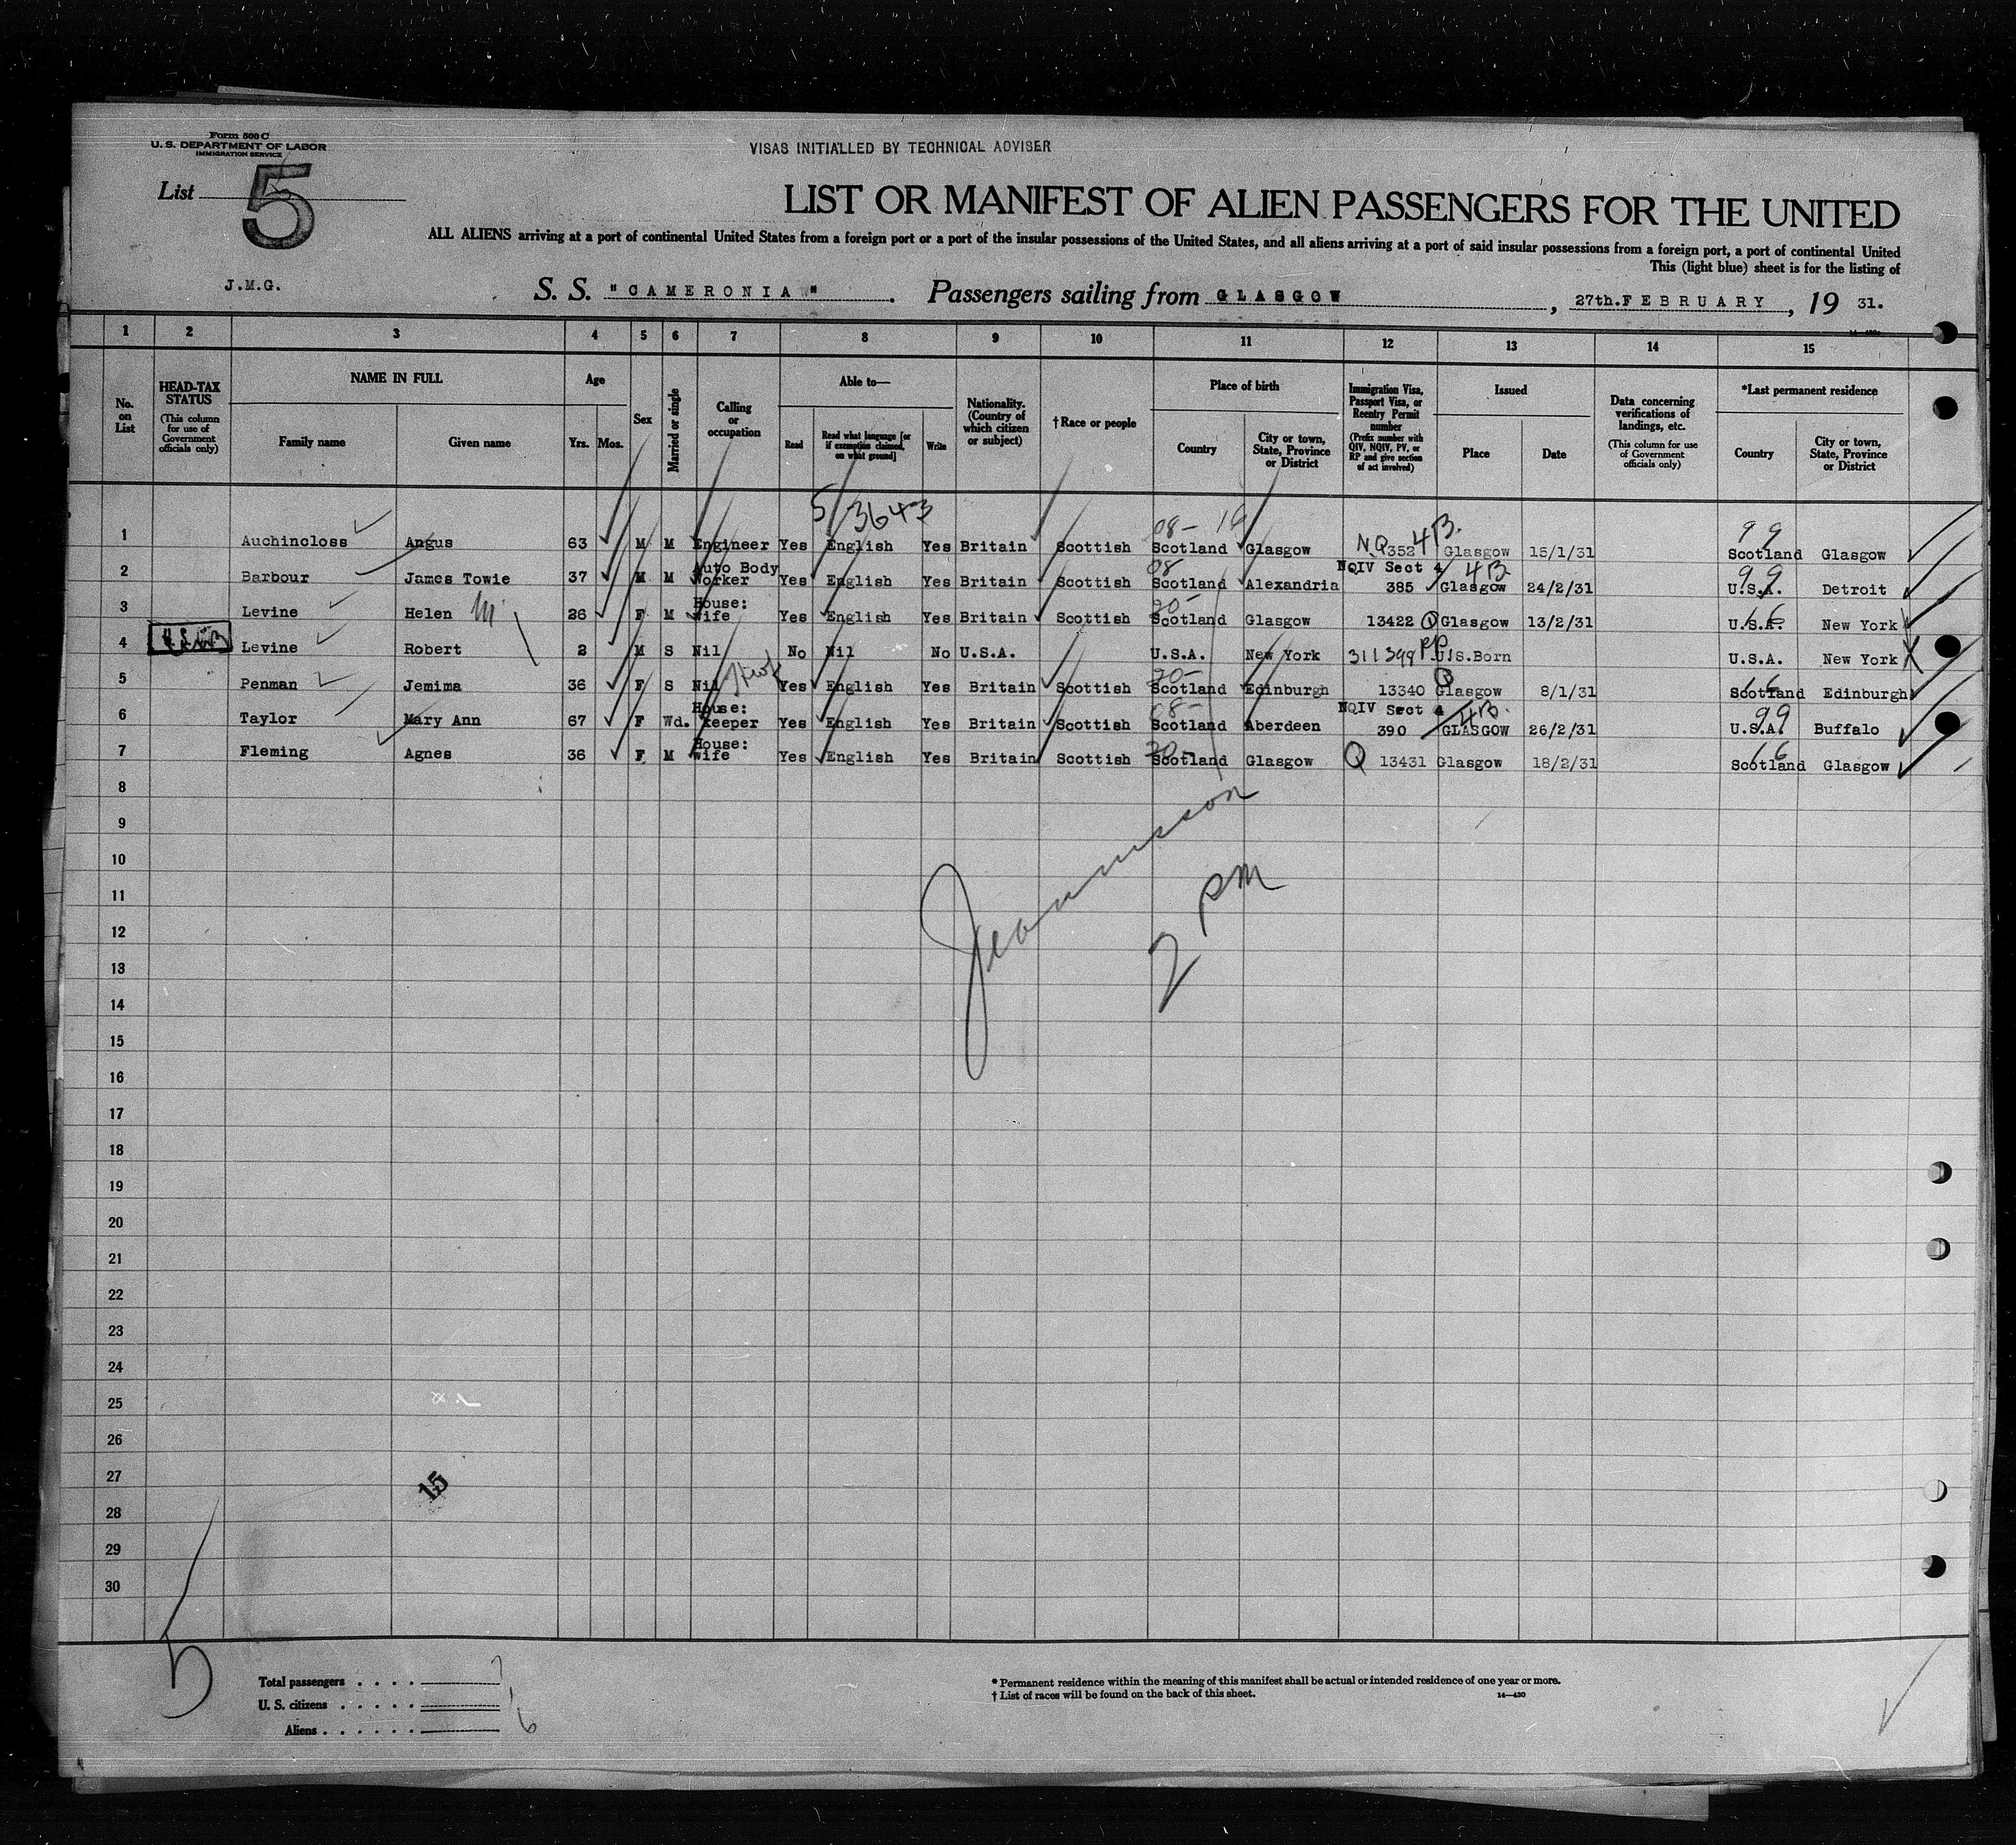 Form 500 C
U. S. DEPARTMENT OF LABOR
IMMIGRATION SERVICE
VISAS INITIALLED BY TECHNICAL ADVISER
List 5
LIST OR MANIFEST OF ALIEN PASSENGERS FOR THE UNITED
ALL ALIENS arriving at a port of continental United States from a foreign port or a port of the insular possessions of the United States, and all aliens arriving at a port of said insular possessions from a foreign port, a port of continental United
This (light blue) sheet is for the listing of
J.M.G.
S. S. "CAMERONIA". Passengers sailing from GLASGOW, 27th.FEBRUARY, 19 31.
1 2 3 4 5 6 7 8 9 10 11 12 13 14 15
No. on List
HEAD-TAX STATUS (This column for use of Government officials only)
NAME IN FULL
Family name Given name
Age
Yrs. Mos.
Sex
Married or single
Calling or occupation
Able to—
Read Read what language [or if exemption claimed, on what ground] Write
Nationality. (Country of which citizen or subject)
†Race or people
Place of birth
Country City or town, State, Province or District
Immigration Visa, Passport Visa, or Reentry Permit number (Prefix number with QIV, NQIV, PV, or RP and give section of act involved)
Issued
Place Date
Data concerning verifications of landings, etc. (This column for use of Government officials only)
*Last permanent residence
Country City or town, State, Province or District
5/3643
1 Auchincloss Angus 63 M M Engineer Yes English Yes Britain Scottish 08- Scotland Glasgow NQ 352 4B. Glasgow 15/1/31 99 Scotland Glasgow
2 Barbour James Towie 37 M M Auto Body Worker Yes English Yes Britain Scottish 08 Scotland Alexandria NQIV Sect 4 385 4B Glasgow 24/2/31 99 U.S.A. Detroit
3 Levine Helen M 26 F M House: wife Yes English Yes Britain Scottish 20- Scotland Glasgow 13422 Q Glasgow 13/2/31 16 U.S.A. New York
4 Levine Robert 2 M S Nil No Nil No U.S.A. U.S.A. New York 311399 PP U.S.Born U.S.A. New York
5 Penman Jemima 36 F S Nil Yes English Yes Britain Scottish 20- Scotland Edinburgh 13340 Q Glasgow 8/1/31 16 Scotland Edinburgh
6 Taylor Mary Ann 67 F Wd. House: keeper Yes English Yes Britain Scottish 08- Scotland Aberdeen NQIV Sect 4 390 4B. GLASGOW 26/2/31 99 U.S.A. Buffalo
7 Fleming Agnes 36 F M House: wife Yes English Yes Britain Scottish 20- Scotland Glasgow Q 13431 Glasgow 18/2/31 16 Scotland Glasgow
8
9
10
11
12
13
14
15
16
17
18
19
20
21
22
23
24
25
26
27
28
29
30
2 PM
15
5
Total passengers . . . . 7
U. S. citizens . . . . . 1
Aliens . . . . . . 6
* Permanent residence within the meaning of this manifest shall be actual or intended residence of one year or more.
† List of races will be found on the back of this sheet.
14—430